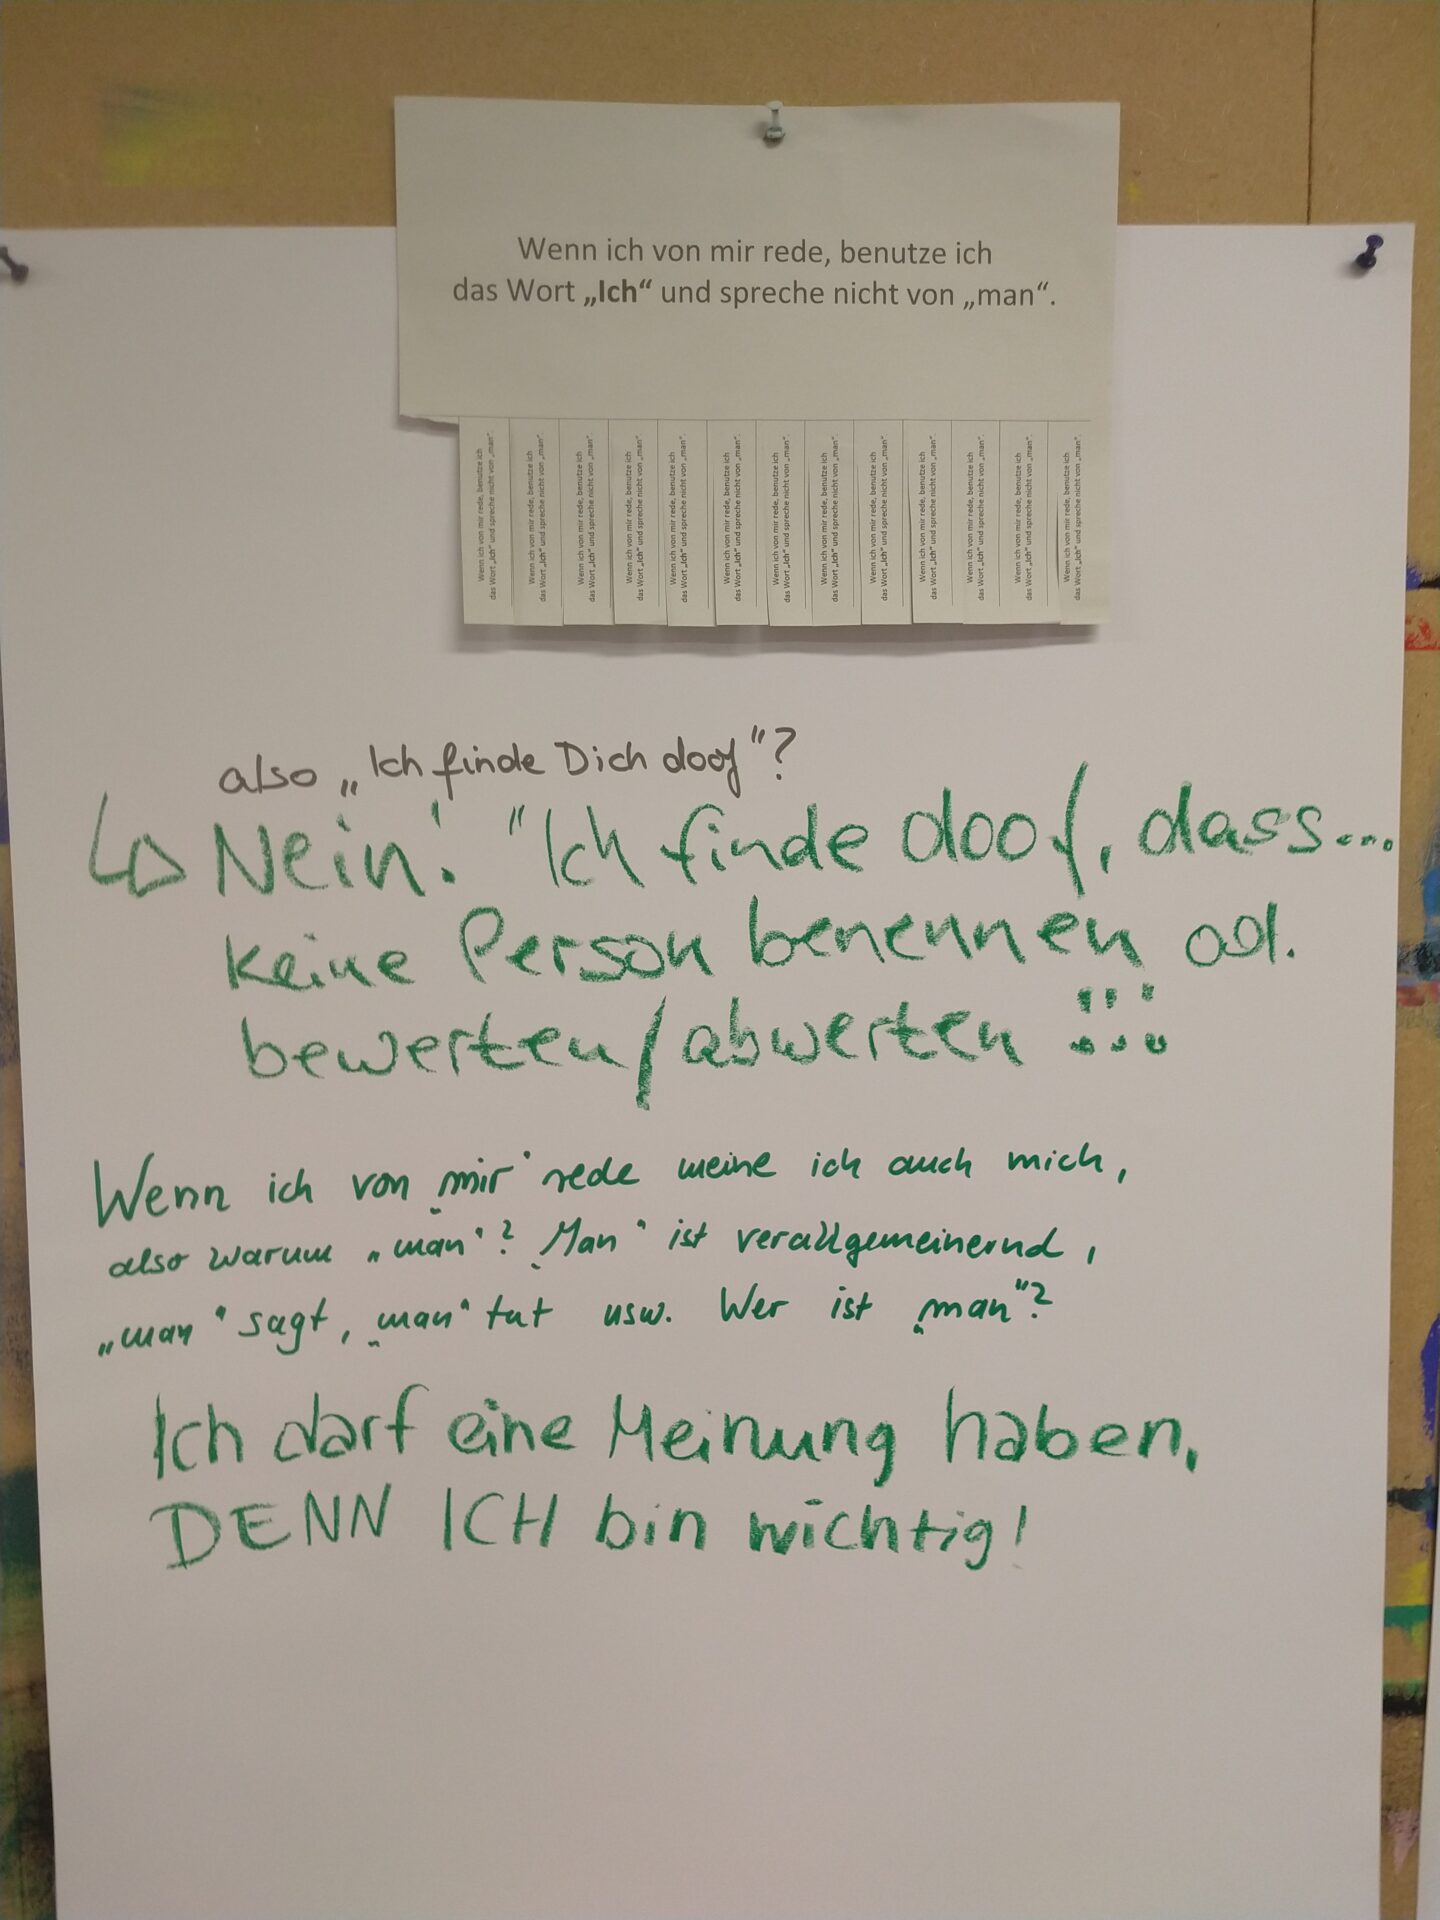 Wenn ich von mir rede, benutze ich
das Wort „Ich“ und spreche nicht von „man“.
Wenn ich von mir rede, benutze ich
das Wort „Ich“ und spreche nicht von „man“.
Wenn ich von mir rede, benutze ich
das Wort „Ich“ und spreche nicht von „man“.
Wenn ich von mir rede, benutze ich
das Wort „Ich“ und spreche nicht von „man“.
Wenn ich von mir rede, benutze ich
das Wort „Ich“ und spreche nicht von „man“.
Wenn ich von mir rede, benutze ich
das Wort „Ich“ und spreche nicht von „man“.
Wenn ich von mir rede, benutze ich
das Wort „Ich“ und spreche nicht von „man“.
Wenn ich von mir rede, benutze ich
das Wort „Ich“ und spreche nicht von „man“.
Wenn ich von mir rede, benutze ich
das Wort „Ich“ und spreche nicht von „man“.
Wenn ich von mir rede, benutze ich
das Wort „Ich“ und spreche nicht von „man“.
Wenn ich von mir rede, benutze ich
das Wort „Ich“ und spreche nicht von „man“.
Wenn ich von mir rede, benutze ich
das Wort „Ich“ und spreche nicht von „man“.
Wenn ich von mir rede, benutze ich
das Wort „Ich“ und spreche nicht von „man“.
Wenn ich von mir rede, benutze ich
das Wort „Ich“ und spreche nicht von „man“.
also „Ich finde Dich doof“?
↳ Nein! "Ich finde doof, dass...
keine Person benennen od.
bewerten/abwerten !!!
Wenn ich von „mir“ rede meine ich auch mich,
also warum „man“? „Man“ ist verallgemeinernd,
„man“ sagt, „man“ tut usw. Wer ist „man“?
Ich darf eine Meinung haben,
DENN ICH bin wichtig!